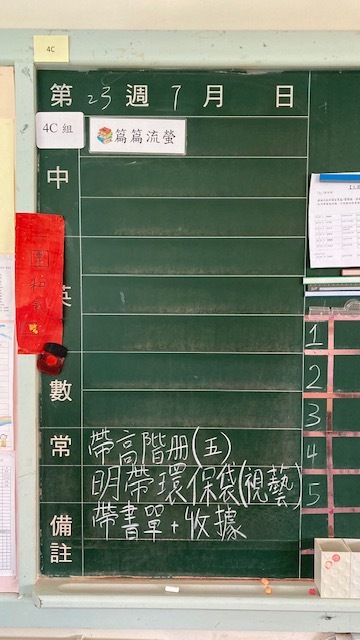 4C
第 23 週 7 月 日
4C 組
篇篇流螢
中
英
數
常 帶高階册(五)
明帶環保袋(視藝)
備註 帶書單+收據
1
2
3
4
5